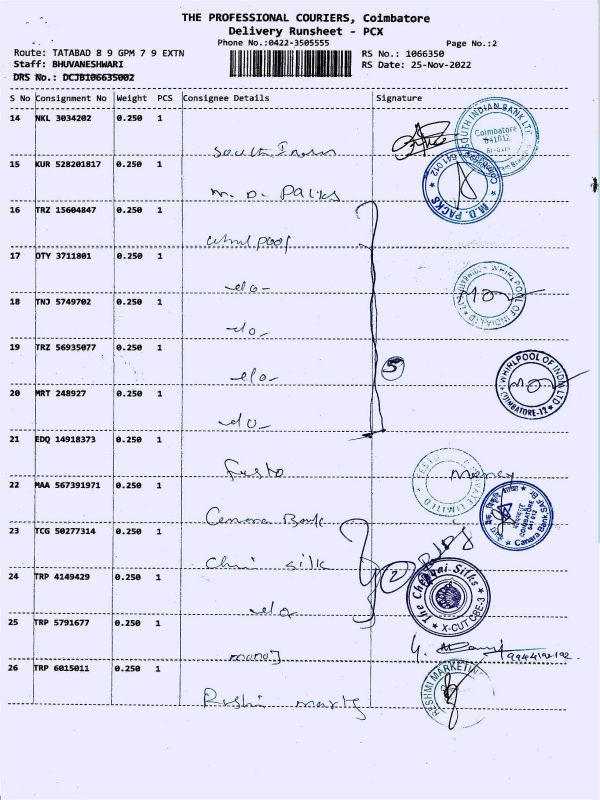 THE PROFESSIONAL COURIERS, Coimbatore
Delivery Runsheet - PCX
Phone No.:0422-3505555
Page No.:2
Route: TATABAD 8 9 GPM 7 9 EXTN
RS No.: 1066350
Staff: BHUVANESHWARI
RS Date: 25-Nov-2022
DRS No.: DCJB106635002
S No Consignment No Weight PCS Consignee Details Signature
14 NKL 3034202 0.250 1
South Indian
SOUTH INDIAN BANK LTD. Coimbatore 641012
15 KUR 528201817 0.250 1
M. D. Packs
M.D. PACKS COIMBATORE 641 012
16 TRZ 15604847 0.250 1
whirlpool
17 OTY 3711801 0.250 1
do-
WHIRLPOOL OF INDIA LTD COIMBATORE
18 TNJ 5749702 0.250 1
do-
19 TRZ 56935077 0.250 1
do-
5
WHIRLPOOL OF INDIA LTD COIMBATORE-12
20 MRT 248927 0.250 1
do-
21 EDQ 14918373 0.250 1
Festo
FESTO PRIVATE LIMITED
22 MAA 567391971 0.250 1
Canara Bank
COIMBATORE 641012 Canara Bank
23 TCG 50277314 0.250 1
Chni silk
2
24 TRP 4149429 0.250 1
do
The Chennai Silks X-CUT CBE-3
25 TRP 5791677 0.250 1
manoj
26 TRP 6015011 0.250 1
Rashmi markg
RESHMI MARKETING